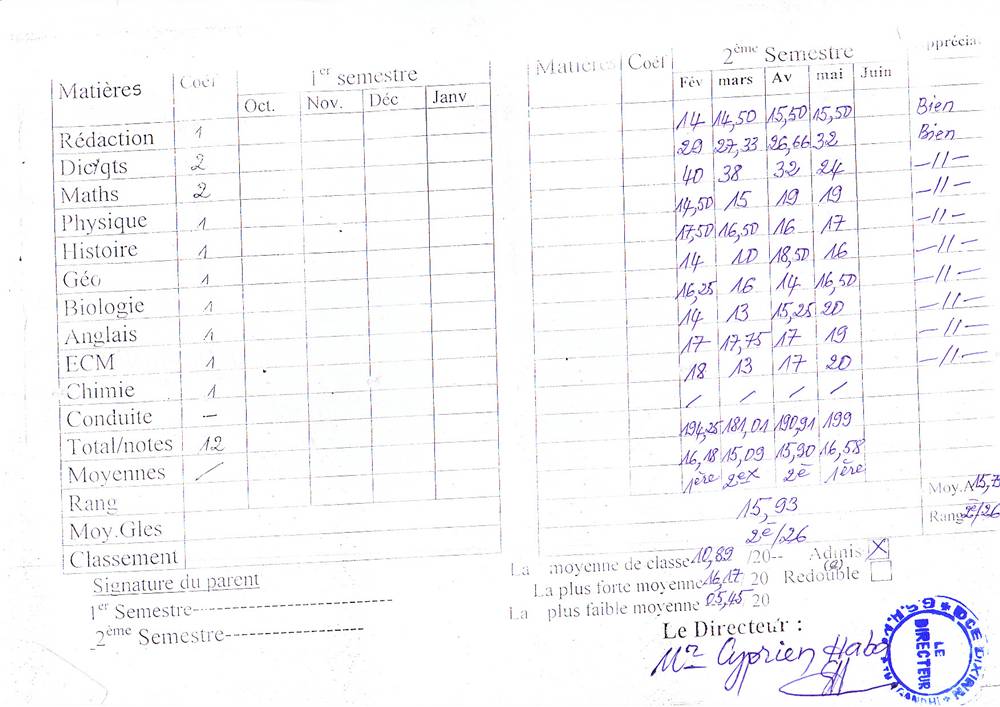 Matières Coéf 1er semestre
Oct. Nov. Déc Janv
Rédaction 1
Dic/qts 2
Maths 2
Physique 1
Histoire 1
Géo 1
Biologie 1
Anglais 1
ECM 1
Chimie 1
Conduite —
Total/notes 12
Moyennes /
Rang
Moy.Gles
Classement
Signature du parent
1er Semestre--------------------
2ème Semestre--------------------
Matières Coéf 2ème Semestre
Fév mars Av mai Juin
14 14,50 15,50 15,50 Bien
29 27,33 26,66 32 Bien
40 38 32 24 –//–
14,50 15 19 19 –//–
17,50 16,50 16 17 –//–
14 10 18,50 16 –//–
16,25 16 14 16,50 –//–
14 13 15,25 20 –//–
17 17,75 17 19 –//–
18 13 17 20 –//–
/ / / /
194,25 181,01 190,91 199
16,18 15,09 15,90 16,58
1ère 2ex 2è 1ère
15,93 Moy.A 15,7
2è/26 Rang 2è/26
La moyenne de classe 10,89 /20-- Admis(e) X
La plus forte moyenne 16,17 / 20 Redouble
La plus faible moyenne 05,45 20
Le Directeur :
Mr Cyprien
LE DIRECTEUR